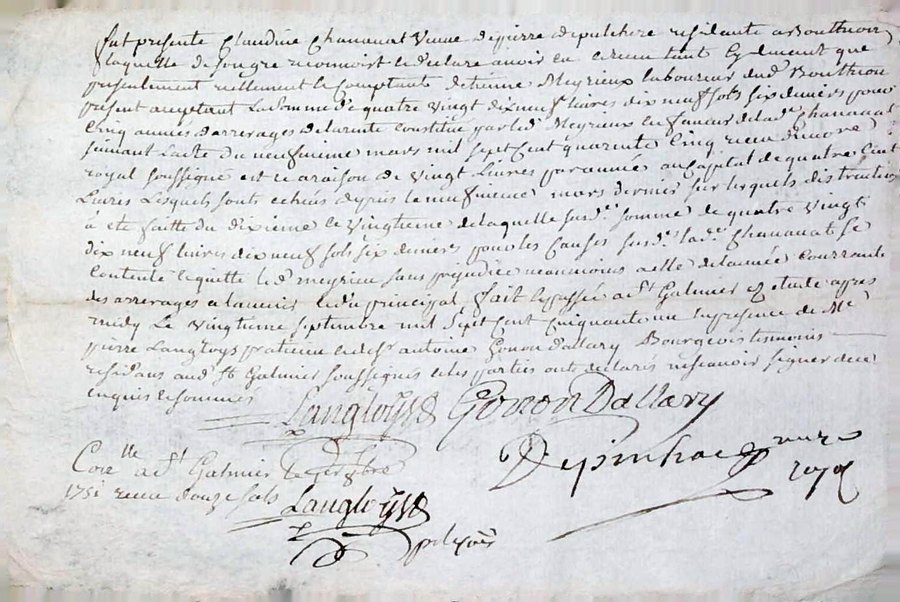 fut presente Claudine Chananat veuve de pierre depulchere residante a Boutheon
Laquelle de son gre reconnoist et declare avoir eu et receu tant cy devant que
presentement reellement et comptant d'etienne Meyrieux laboureur dud. Boutheon
present acceptant la somme de quatre vingt dix neuf livres dix neuf sols six deniers pour
Cinq années d'arrerages de la rente constitué par led. Meyrieux en faveur de lad.e Chananat
suivant l'acte du neufvieme mars mil sept cent quarente cinq receu
royal soussigné est ce a raison de vingt livres par année au Capital de quatre Cent
Livres Lesquels sont echeus depuis le neufvieme mars dernier sur lesquels distraction
à eté faitte du dixieme et vingtieme de laquelle susd.e somme de quatre vingt
dix neuf livres dix neuf sols six deniers pour les causes susd.es lad.e Chananat se
contente et quitte led. meyrieu sans prejudice neanmoins a elle de l'année courrante
des arrerages a l'avenir et du principal fait et passée a St Galmier etude apres
midy Le vingtieme septembre mil sept cent cinquante un en presence de Me
pierre Langloys praticien et de sr antoine Gonon Dallary Bourgeois temoins
residans aud. St Galmier soussignés et les parties ont declarés ne scavoir signer de ce
enquis et sommés
Langloys Gonon Dallary
Con.lle a St Galmier le
1751 receu douze sols
Depinhac no.re
royal
Langloys